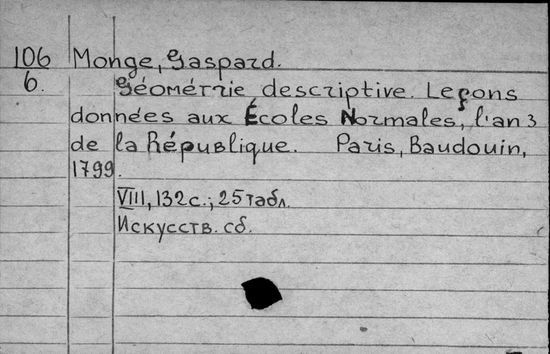 106 Monge, Gaspard.
6. Géométrie descriptive. Leçons
données aux Écoles Normales, l'an 3
de la République. Paris, Baudouin,
1799.
VIII, 132 с.; 25 табл.
Искусств. сб.